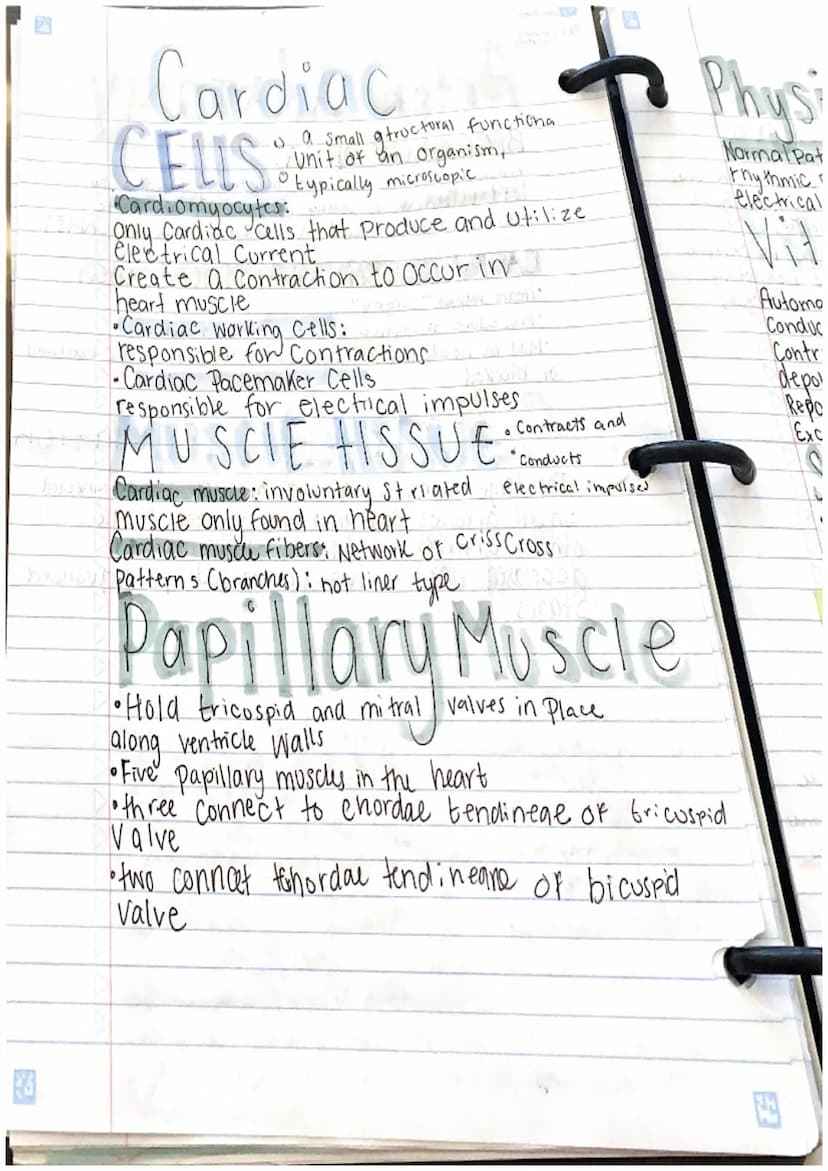 Cardiac
CELLS
o a small gtructural functiona
unit of an organism,
o typically microscopic
•Cardiomyocytes:
only Cardiac cells that produce and utilize
electrical Current
Create a Contraction to occur in
heart muscle
•Cardiac working cells:
responsible for Contractions
•Cardiac Pacemaker Cells
responsible for electrical impulses
MUSCLE tISSUE
•Contracts and
•Conducts
electrical impulses
Cardiac muscle: involuntary Striated
muscle only found in heart
Cardiac muscle fibers: Network of crisscross
patterns (branches): not liner type
Papillary Muscle
•Hold tricospid and mitral valves in place
along ventricle walls
•Five papillary muscles in the heart
•three connect to chordae tendineae of tricuspid
valve
•two connect chordae tendineane of bicuspid
valve
Physi
Normal Pat
rhythmic
electrical
Vit
Automa
Conduc
Contr
depo
Repo
Exc